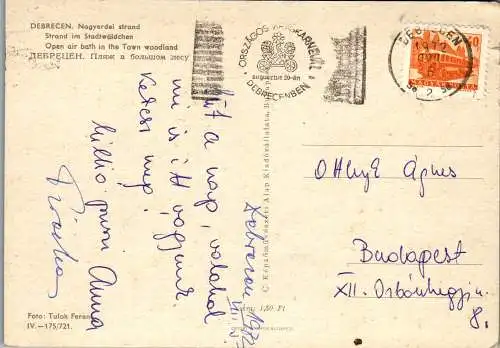 DEBRECEN. Nagyerdei strand
Strand im Stadtwäldchen
Open air bath in the Town woodland
ДЕБРЕЦЕН. Пляж в большом лесу
ORSZÁGOS VIRÁGKARNEVÁL
augusztus 20-án
DEBRECENBEN
DEBRECEN
1972
Debrecen 1972
Süt a nap, valahol
mi is itt vagyunk.
Kezét
Millió puszi Anna
Piroska
Ágnes
Budapest
XII. Orbánhegyi u.
8.
Foto: Tulok Ferenc
IV.—175/721.
C Képzőművészeti Alap Kiadóvállalata, Budapest
1,50 Ft